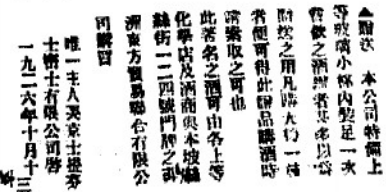 ▲贈送　本公司特備上
等玻璃小樽內裝足一次
飲之酒
贈送之用凡購大的一樽
者便可得此贈品購酒時
請索取之可也
此著名之酒可由各上等
化學店及酒商與本坡
絲街一二四號門牌之
洲東方貿易聯合有限公
司購買
唯一主人英京士
士密士有限公司啓
一九二六年十月十三